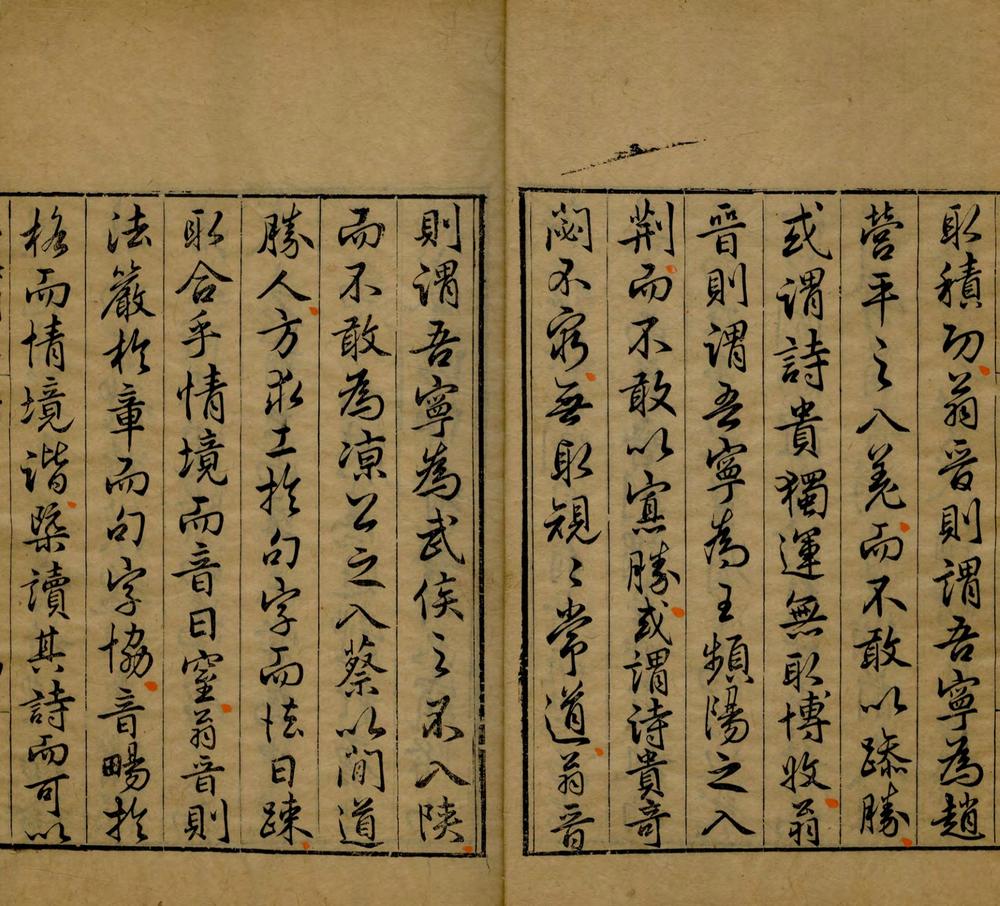 取積功翁晋則謂吾寧為趙
營平之入羌而不敢以躁勝
或謂詩貴獨運無取博收翁
晋則謂吾寧為王頻陽之入
荆而不敢以寡勝或謂詩貴奇
閟不窮無取規〻常道翁晋
則謂吾寧為武侯之不入陝
而不敢為凉公之入蔡以間道
勝人方求工於句字而法日疎
取合乎情境而音日窒翁晋則
法嚴於章而句字協音暢於
格而情境諧槩讀其詩而可以